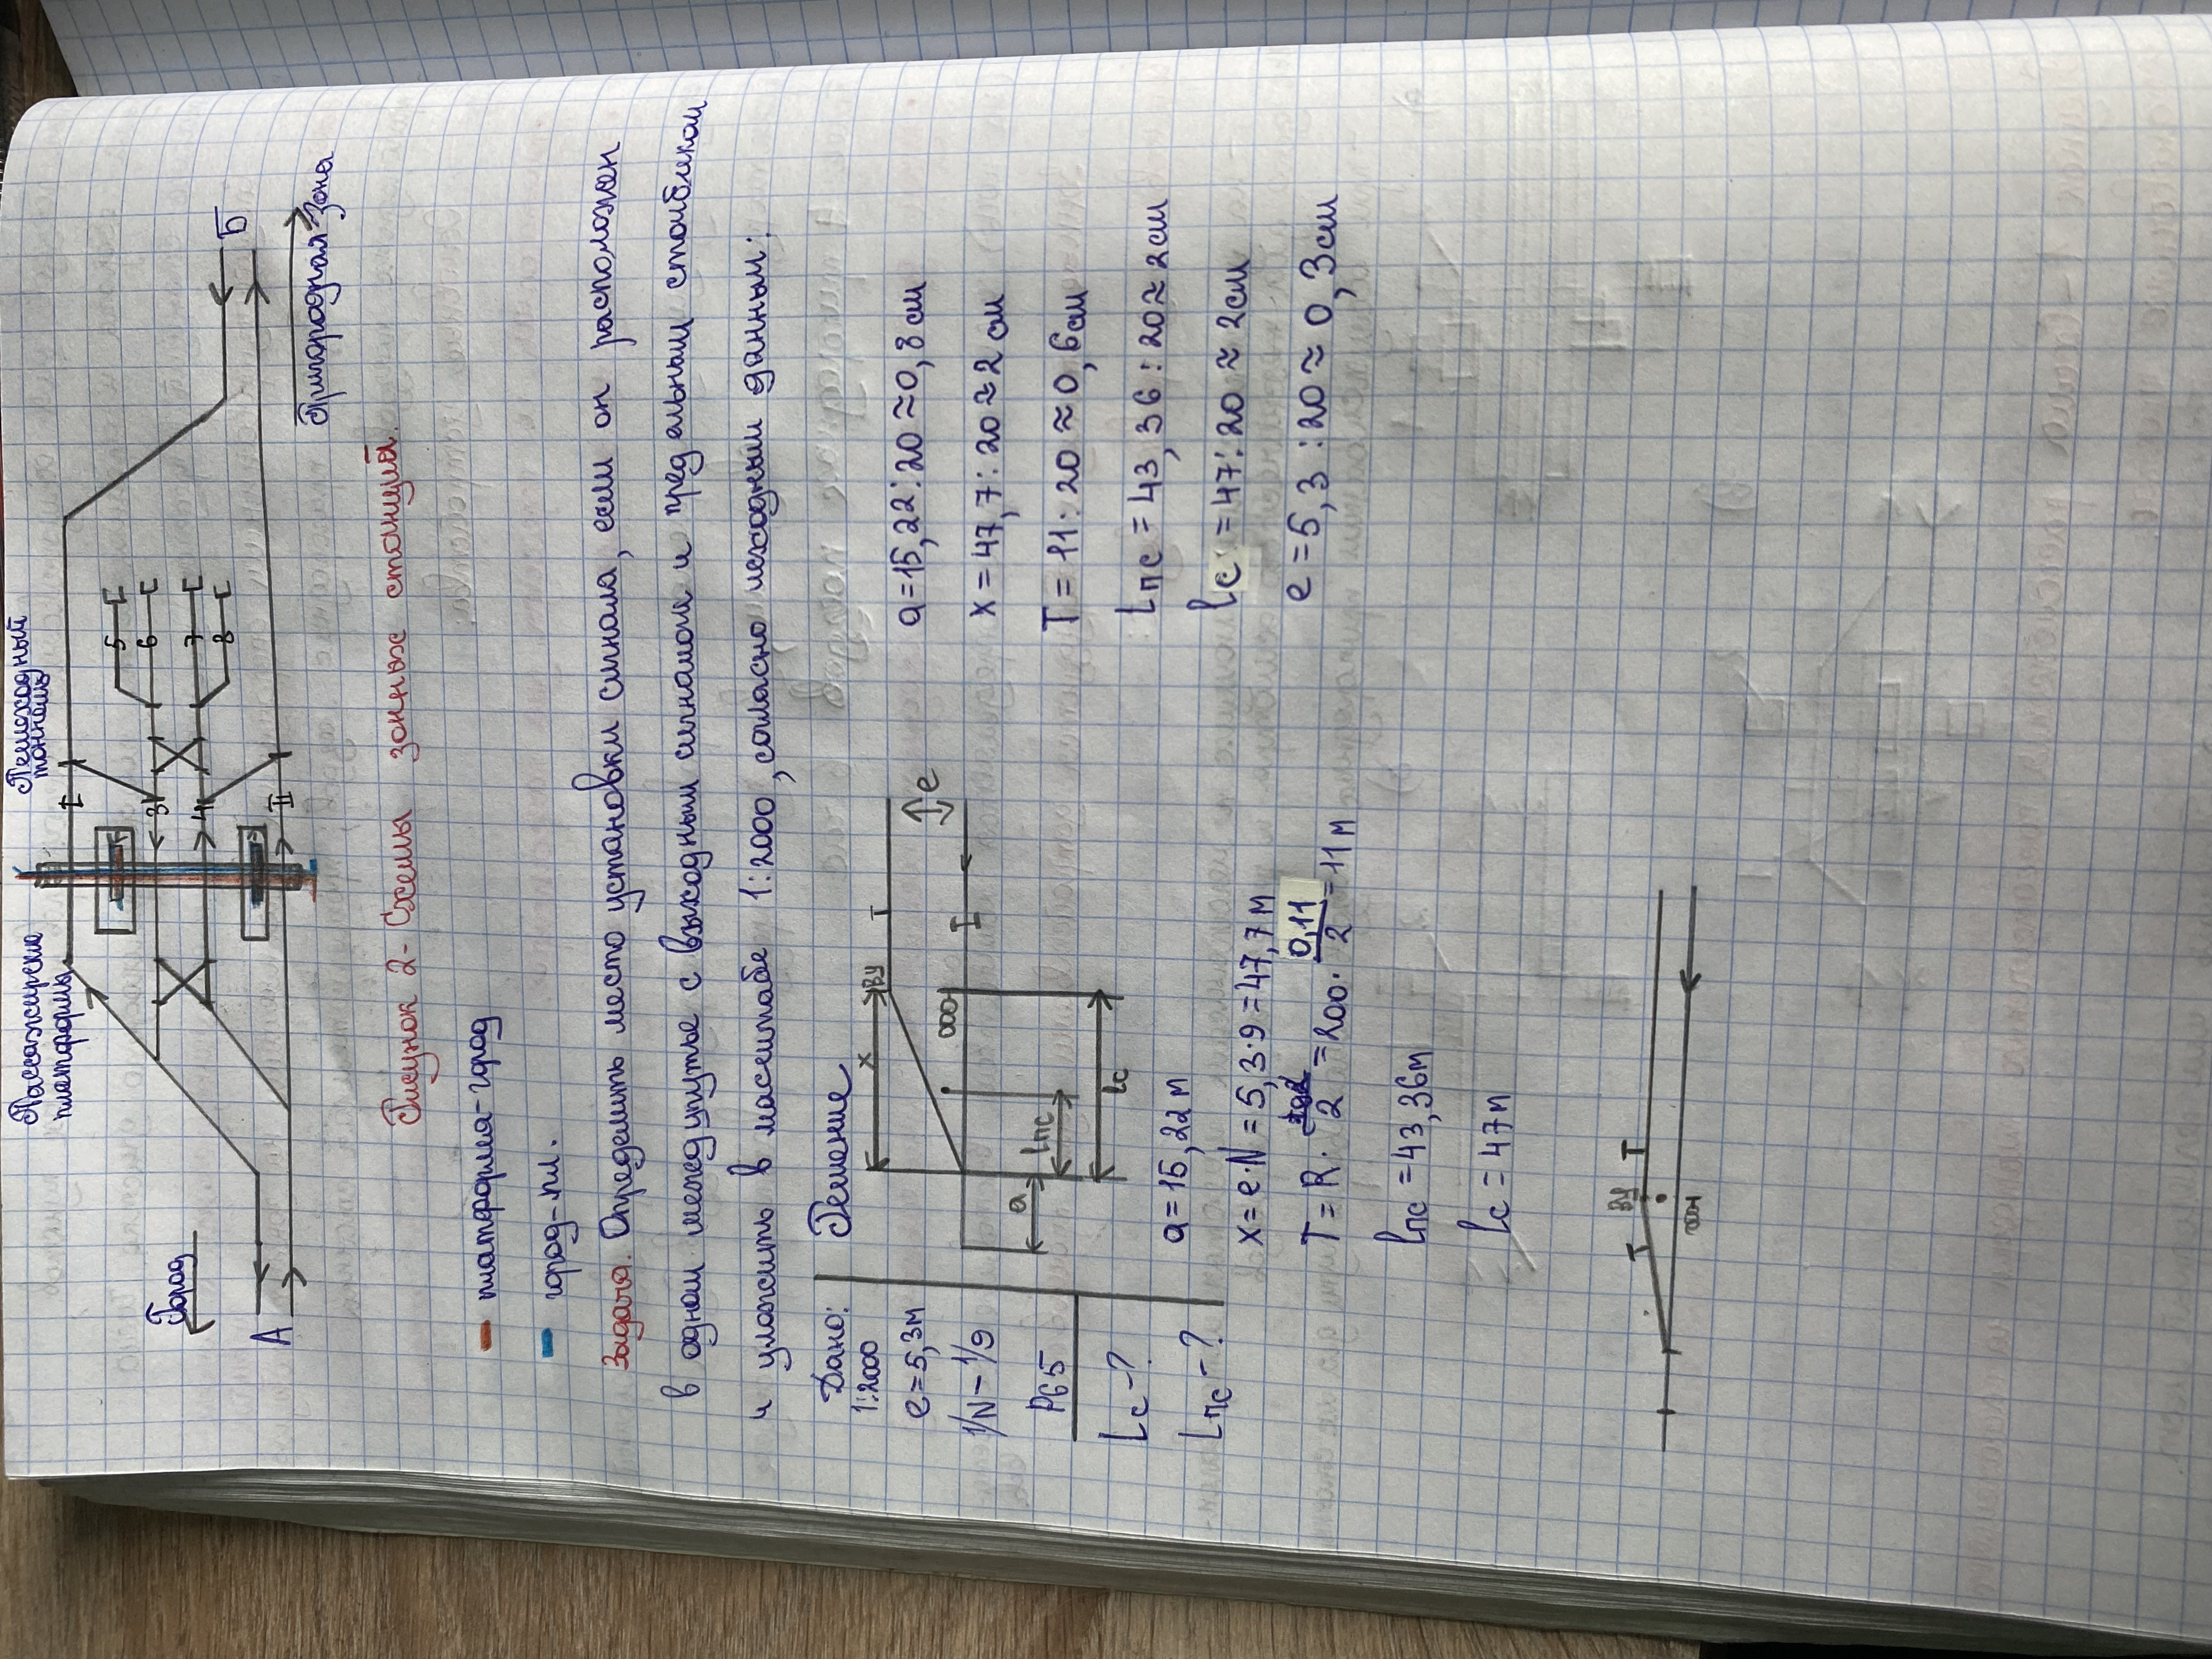 Пассажирские
платформы
Пешеходный
тоннель
I
5
6
7
8
3
4
II
Город
А
Б
Пригородная зона
Рисунок 2 - Схемы зонных станций.
- платформа-город
- город-пл.
Задача. Определить место установки сигнала, если он расположен
в одном междупутье с выходным сигналом и предельным столбиком
и уложить в масштабе 1:2000, согласно исходным данным:
Дано:
1:2000
e=5,3м
1/N-1/9
Р65
Lс-?
Lпс-?
Решение
x
ВУ
T
I
e
a
Lпс
lс
a=15,22м
x=e·N=5,3·9=47,7м
T=R· 2 =200· 0,11/2=11м
lпс=43,36м
lс=47м
a=15,22:20≈0,8см
x=47,7:20≈2см
T=11:20≈0,6см
lпс=43,36:20≈2см
lс=47:20≈2см
e=5,3:20≈0,3см
T
ВУ
T